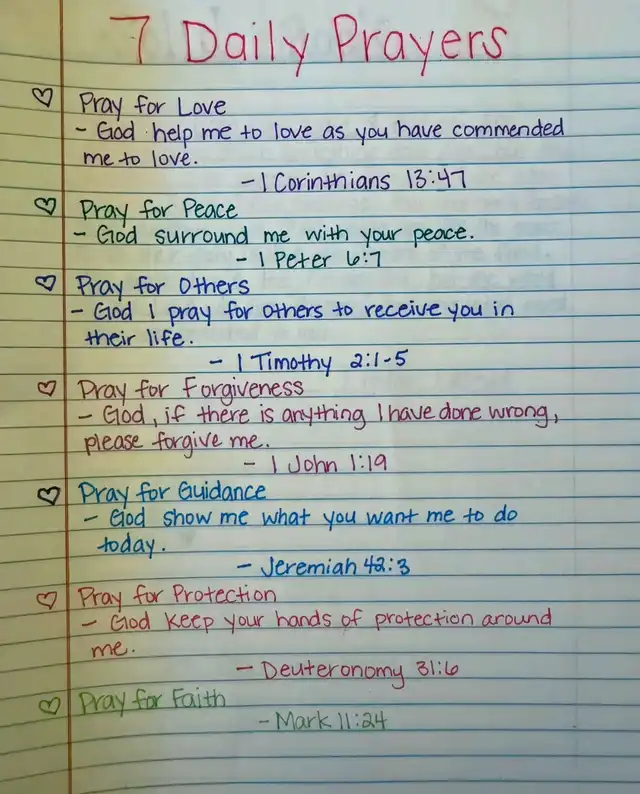 7 Daily Prayers
Pray for Love
- God help me to love as you have commended
me to love.
- 1 Corinthians 13:47
Pray for Peace
- God surround me with your peace.
- 1 Peter 6:7
Pray for Others
- God I pray for others to receive you in
their life.
- 1 Timothy 2:1-5
Pray for Forgiveness
- God, if there is anything I have done wrong,
please forgive me.
- 1 John 1:19
Pray for Guidance
- God show me what you want me to do
today.
- Jeremiah 42:3
Pray for Protection
- God keep your hands of protection around
me.
- Deuteronomy 31:6
Pray for Faith
- Mark 11:24